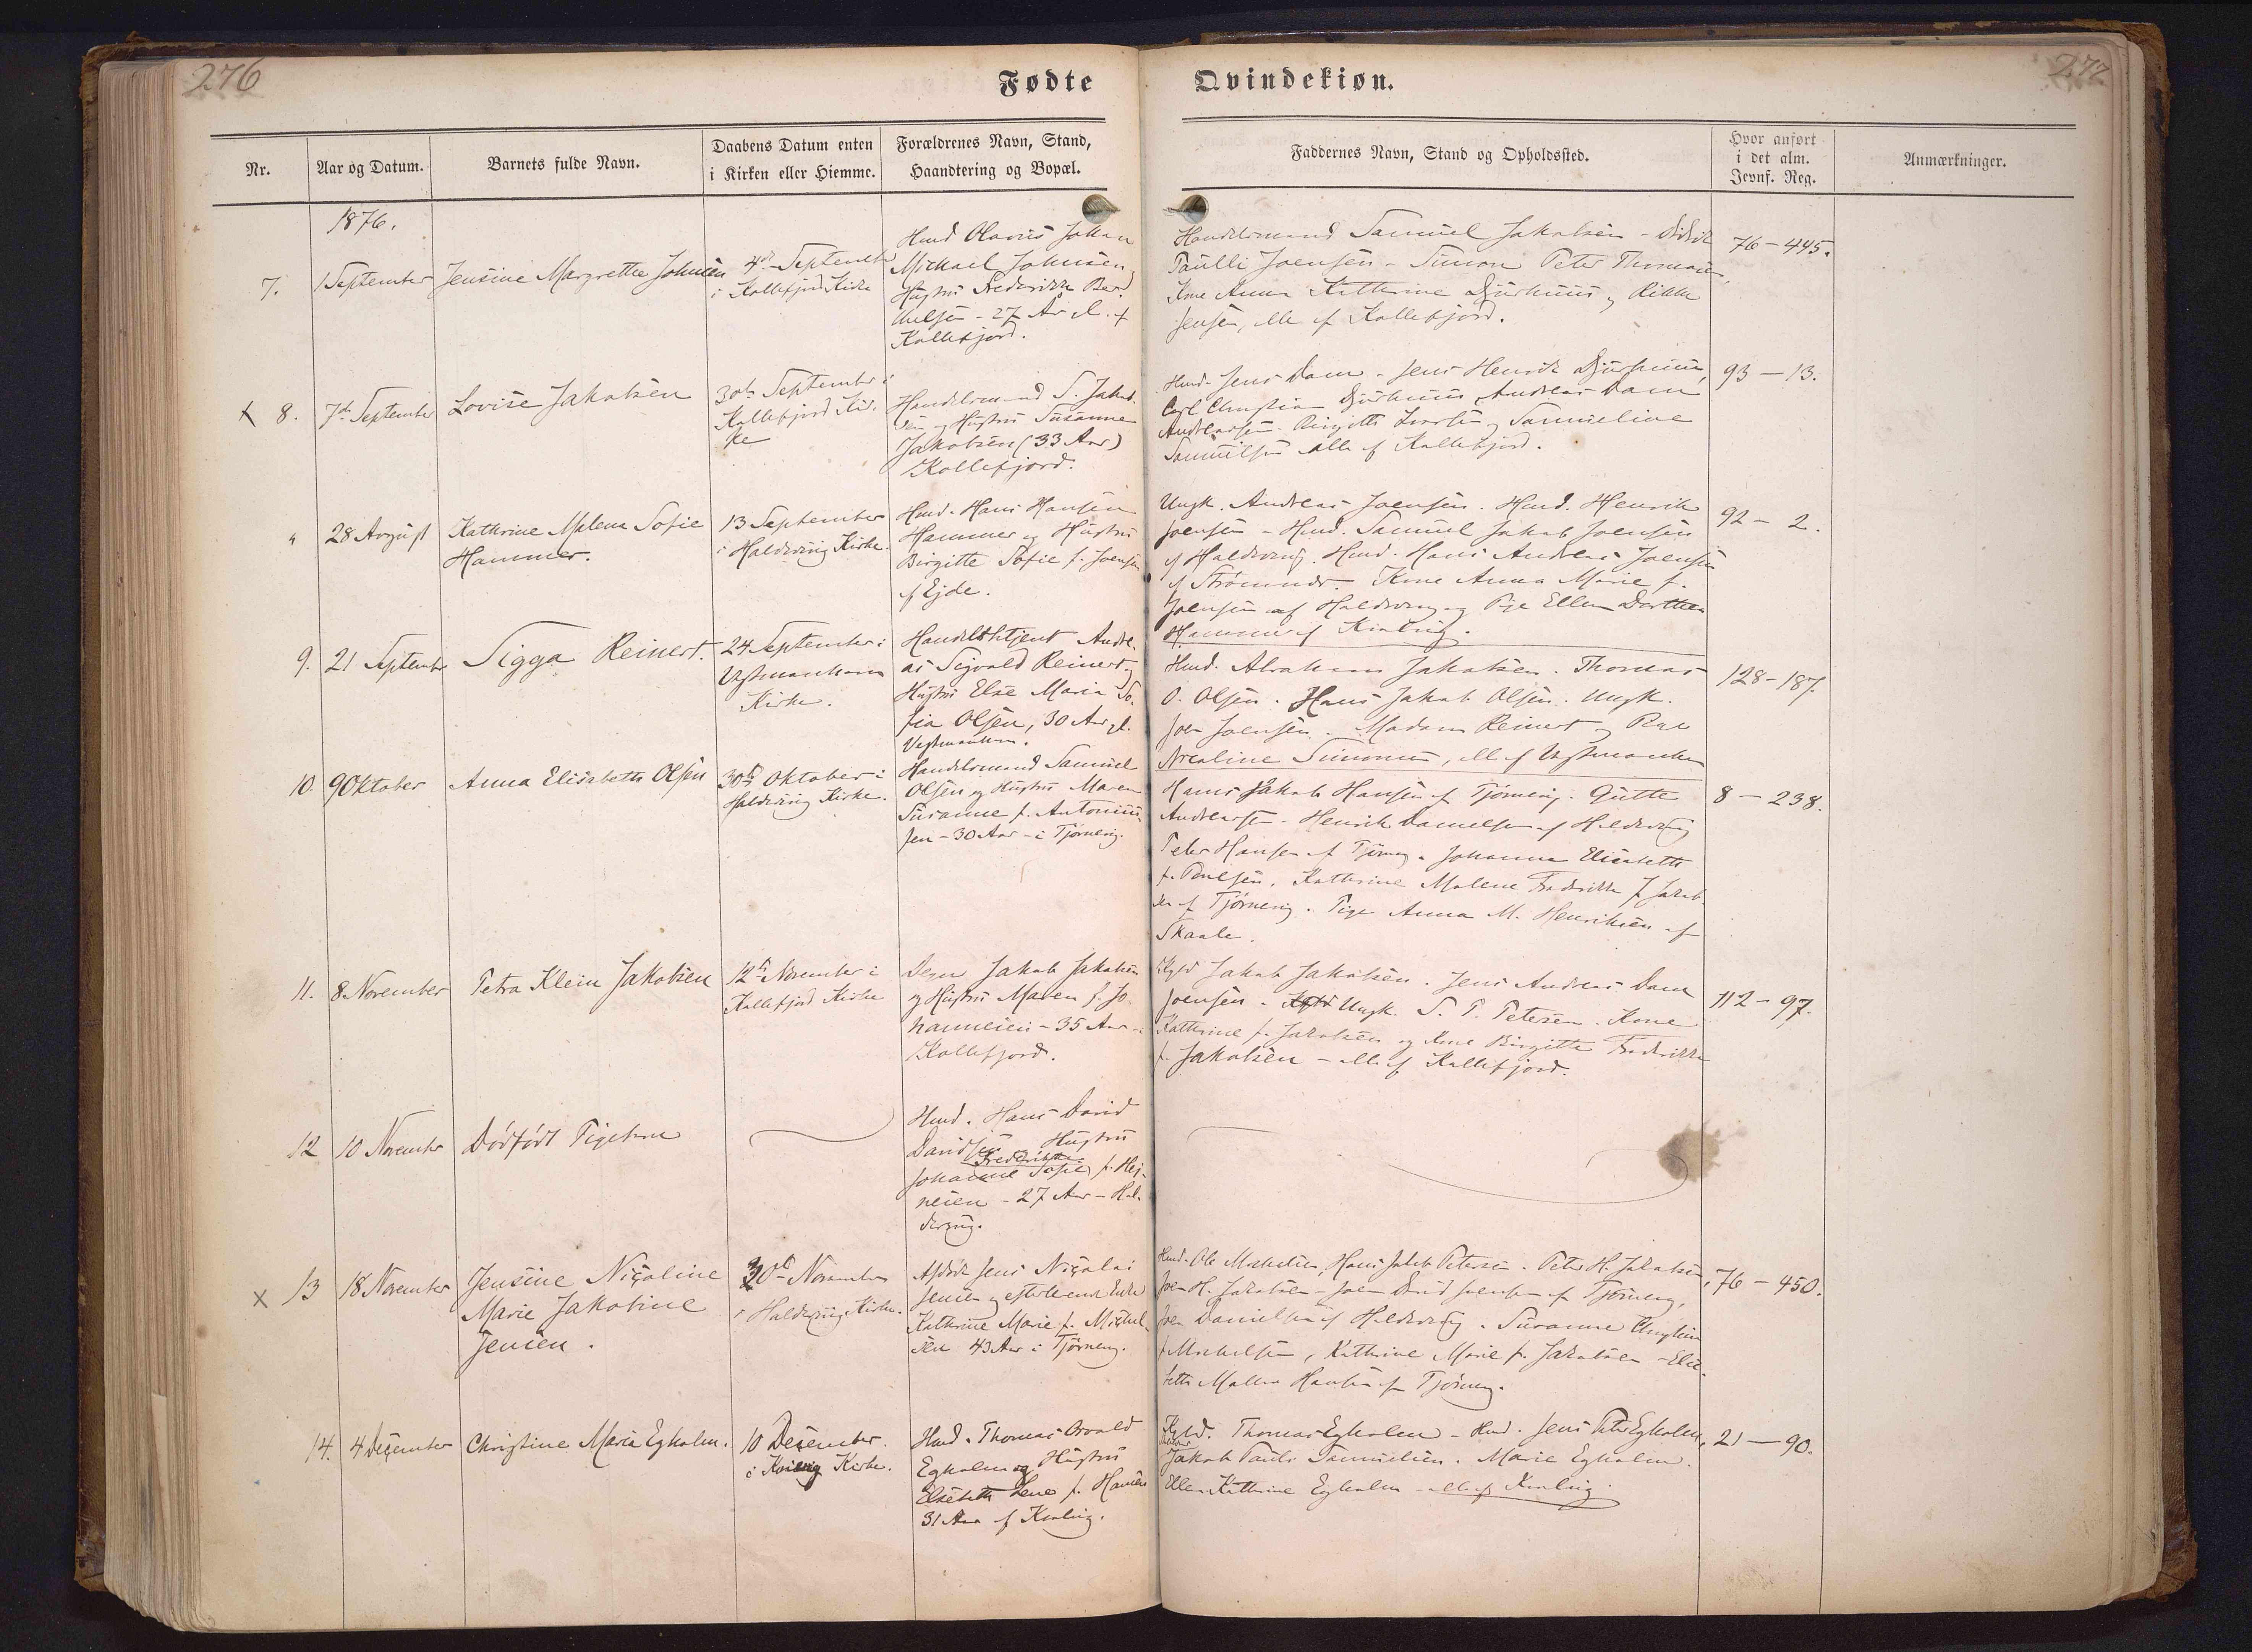 276
Fødte
Qvindekiøn.
277
Nr.
Aar og Datum.
Barnets fulde Navn.
Daabens Datum enten
i Kirken eller Hiemme.
Forældrenes Navn, Stand,
Haandtering og Bopæl.
Faddernes Navn, Stand og Opholdssted.
Hvor anført
i det alm.
Jevnf. Reg.
Anmærkninger.
1876.
7.
1 September
Jensine Margrethe Johnsen
4de September
i Kollefjord Kirke
Hmd Olavus Johan
Michael Johnsen
Hustru Frederikke
27 Ar
Kollefjord.
Handelsmand Samuel Jakobsen
Poulli Joensen - Simon Peter Thomasen,
Kone Anna Kathrine Djurhuus og Rikke
Jensen, alle af Kollefjord.
76-445.
x 8.
7de September
Lovise Jakobsen
30te September i
Kollefjord Kir-
ke
Handelsmand S. Jakob-
sen og Hustru Susanne
Jakobsen (33 Aar)
Kollefjord.
Hmd. Jens Dam - Jens Henrik Djurhuus,
Carl Christian Djurhuus, Andreas Dam
Andreasen. Birgitte og Samueline
Samuelsen alle af Kollefjord.
93-13.
"
28 August
Kathrine Malene Sofie
Hammer.
13 September
i Haldsvig Kirke.
Hmd. Hans Hansen
Hammer og Hustru
Birgitte Sofie f. Joensen
af Ejde.
Ungk. Andreas Joensen. Hmd. Henrik
Joensen - Hmd. Samuel Jakob Joensen
af Haldsvig. Hmd. Hans Andreas Joensen
af Strømnæs. Kone Anna Marie f.
Joensen af Haldsvig og Pige Ellen Dorthea
Hammer af
92-2.
9.
21 September
Sigga Reinert.
24 September i
Vestmanhavn
Kirke.
Handelsbetjent Andre-
as Sigvald Reinert og
Hustru Else Maria So-
fia Olsen, 30 Aar gl.
Vestmanhavn.
Hmd. Abraham Jakobsen. Thomas
O. Olsen. Hans Jakob Olsen. Ungk.
Joen Joensen. Madam Reinert og Pige
Nicoline Simonsen, alle af Vestmanhavn
128-187.
10.
9 Oktober
Anna Elisabeth Olsen
30te Oktober i
Haldsvig Kirke.
Handelsmand Samuel
Olsen og Hustru Maren
Susanne f. Antonius-
sen - 30 Aar - i Tjørnevig.
Hans Jakob Hansen af Tjørnevig. Gutte
Andreasen. Henrik Danielsen af Haldsvig
Peter Hansen af Tjørnevig. Johanna Elisabeth
f. Poulsen, Kathrine Malene Frederikke f. Jakob-
sen af Tjørnevig. Pige Anna M. Henriksen af
Skaale.
8-238.
11.
8 November
Petra Klein Jakobsen
12te November i
Kollefjord Kirke
Degn Jakob Jakobsen
og Hustru Maren f. Jo-
hannesen - 35 Aar - i
Kollefjord.
Jakob Jakobsen. Jens Andreas Dam
Joensen. Ungk. S. P. Petersen. Kone
Kathrine f. Jakobsen og Kone Birgitte Frederikke
f. Jakobsen - alle af Kollefjord.
112-97.
12
10 November
Dødfødt Pigebarn
Hmd. Hans David
Davidsen Hustru
Frederikke
Johanne Sofie f. Hej-
nesen - 27 Aar - Hal-
dersvig.
x 13
18 November
Jensine Nicoline
Marie Jakobine
Jensen.
30te November
i Haldsvig Kirke.
Afdøde Jens Nicolai
Jensen og efterlevende Enke
Kathrine Marie f. Michel-
sen 43 Aar i Tjørnevig.
Hmd. Ole Michelsen, Hans Jakob Petersen. Peter H. Jakobsen,
Joen H. Jakobsen - Joen David Joensen af Tjørnevig,
Joen Danielsen af Haldersvig. Susanne
f. Michelsen, Kathrine Marie f. Jakobsen - Elsa-
beth Malene Hansen af Tjørnevig.
76-450.
14.
4 December
Christine Maria Egholm.
10 December.
i Kvivig Kirke.
Hmd. Thomas Osvald
Egholm og Hustru
Elsebeth Lene f. Hansen
31 Aar af Kvalvig.
Thomas Egholm - Hmd. Jens Peter Egholm,
Jakob Pauli Samuelsen. Marie Egholm.
Ellen Kathrine Egholm - alle af Kvalvig.
21-90.